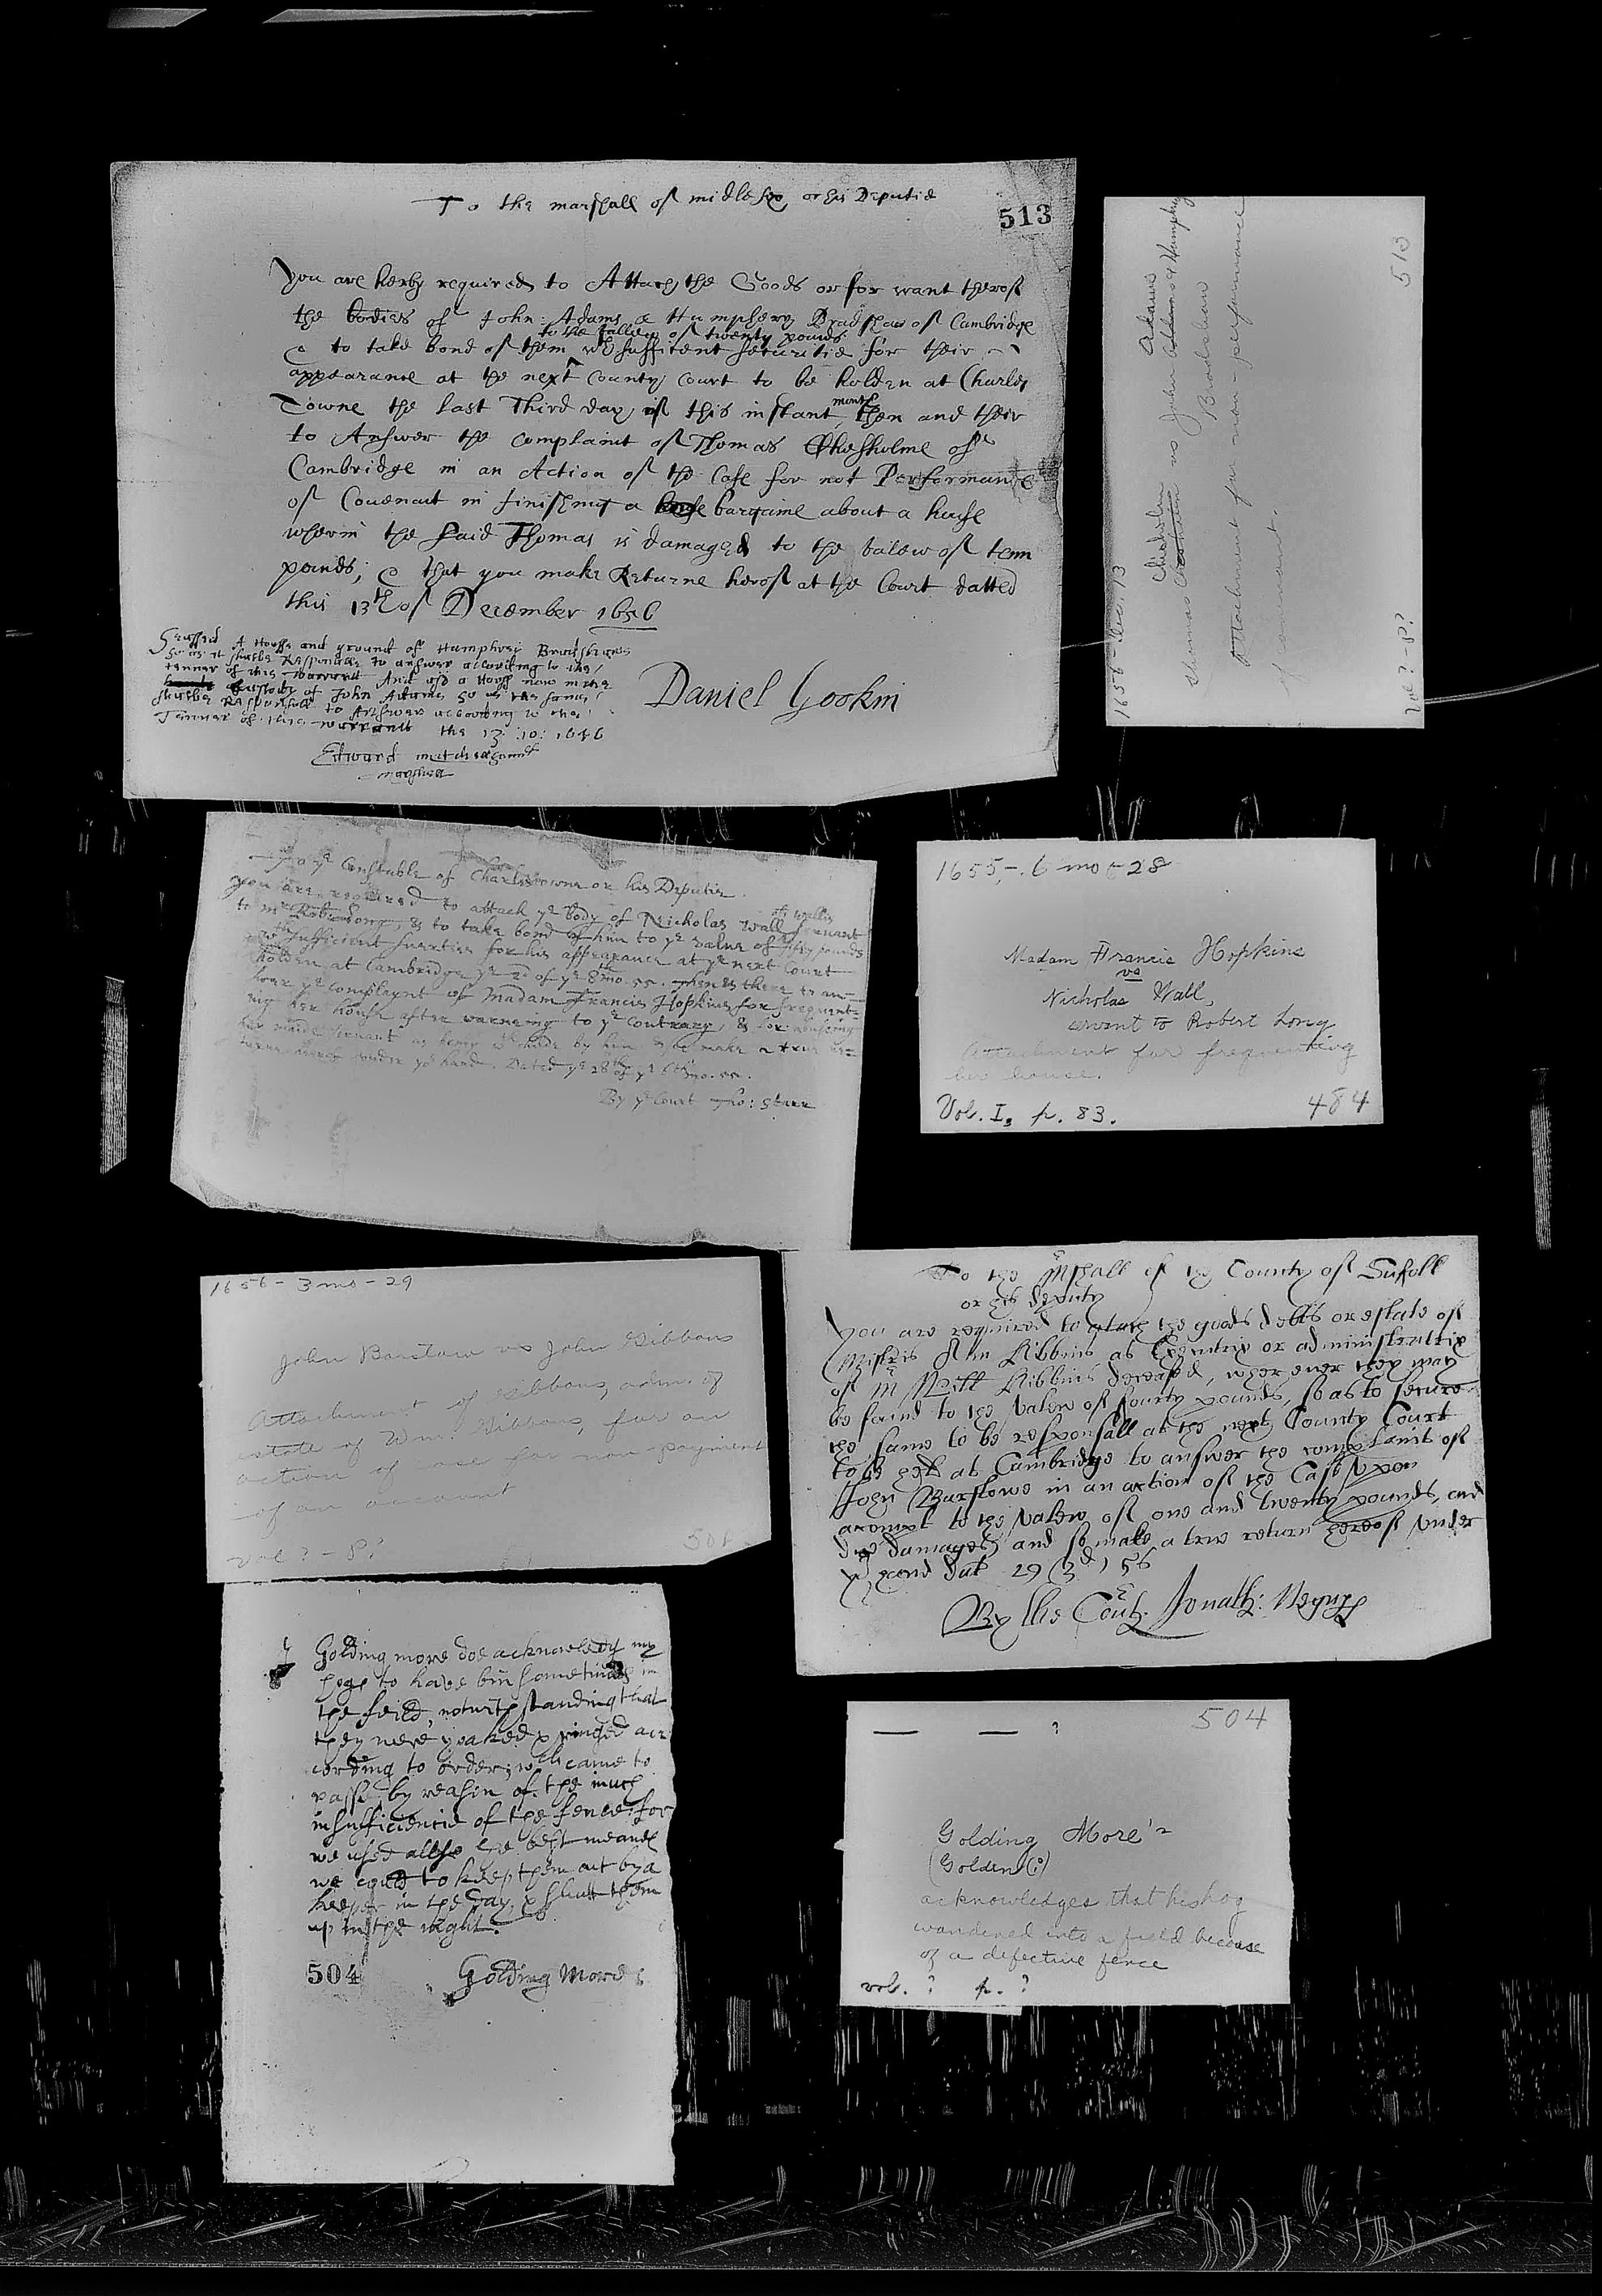 To the marshall of midlesex or his Deputie
513
You are herby required to Attach the Goods or for want therof
the bodies of John: Adams & Humphery Bradshaw of Cambridge
to the vallew of twenty pounds
& to take bond of them wth sufficent securitie for their
appearance at the next County Court to be holden at Charles
Towne the last Third day of this instant month then and their
to Answer the Complaint of Thomas Chesholme of
Cambridge in an Action of the Case for not Performance
of Couenant in finishing a bargaine about a house
wherin the said Thomas is damaged to the valew of tenn
pounds; & that you make Returne herof at the Court datted
this 13th of December 1656
A House and ground of Humphrei Bradshaws
so as it shalbe Responsable to answer according to the
tenner of this warrant And also a House now in the
Custody of John Adams so as the same
shalbe Responsable to Answer according to the
Tenner of this warrant the 13: 10: 1656
Daniel Gookin
Edward mitchelson
marshall
1656-Dec. 13
Thomas Chisholm vs John Adams & Humphry
Bradshaw
Attachment for non-performance
of covenant.
Vol ? - P?
513
To ye Constable of Charlestowne or his Deputie.
you are required to attach ye body of Nicholas Wall servant
to mr Rob: Long, & to take bond of him to ye value of fifty pounds
wth sufficient suerties for his appearance at ye next Court
holden at Cambridge ye 2d of ye 8th mo. 55. Then & there to an-
swer ye complaynt of Madam Francis Hopkins for frequent-
ing her house after warneing to ye contrary, & for
her maide servant as being by him & so make a true re-
turne hereof under yor hand. Dated ye 28th of ye 6th mo. 55.
By ye Court Tho: Starr
1655,-. 6 mo - 28
Madam Francis Hopkins
vs
Nicholas Wall,
servant to Robert Long
Attachment for frequenting
her house.
Vol. I, p. 83.
484
1656 - 3 mo - 29
John Barstow vs John Gibbons
Attachment of Gibbons, adm. of
estate of Wm. Gibbons, for an
action of case for non-payment
of an account
vol ? - P?
501
To the Mrshall of the County of Suffolk
or his deputy
You are required to attach the goods debts or estate of
Mistris Ann Kibbins as Executrix or administratrix
of Mr Will Kibbins deceased, wherever they may
be found to the valew of fourty pounds, so as to secure
the same to be responsall at the next County Court
to be held at Cambridge to answer the complaint of
John Barstowe in an action of the Case vpon
accompt to the valew of one and twenty pounds, and
due damages and so make a true return hereof vnder
yr hand dat 29 (3d) 56
By the Court. Jonath: Negus
I Golding more doe acknowledg my
hogs to have bin sometimes in
the feild, notwithstanding that
they were yoaked & ringed acc
cording to order; wch came to
passe by reason of the much
insufficiencie of the fence: for
we used allso the best meanes
we could to keep them out by a
keeper in the day, & shutt them
up in the night.
504
Golding More
504
— — ?
Golding More's
(Golden(?))
acknowledges that his hog
wandered into a field because
of a defective fence
vol. ? p. ?